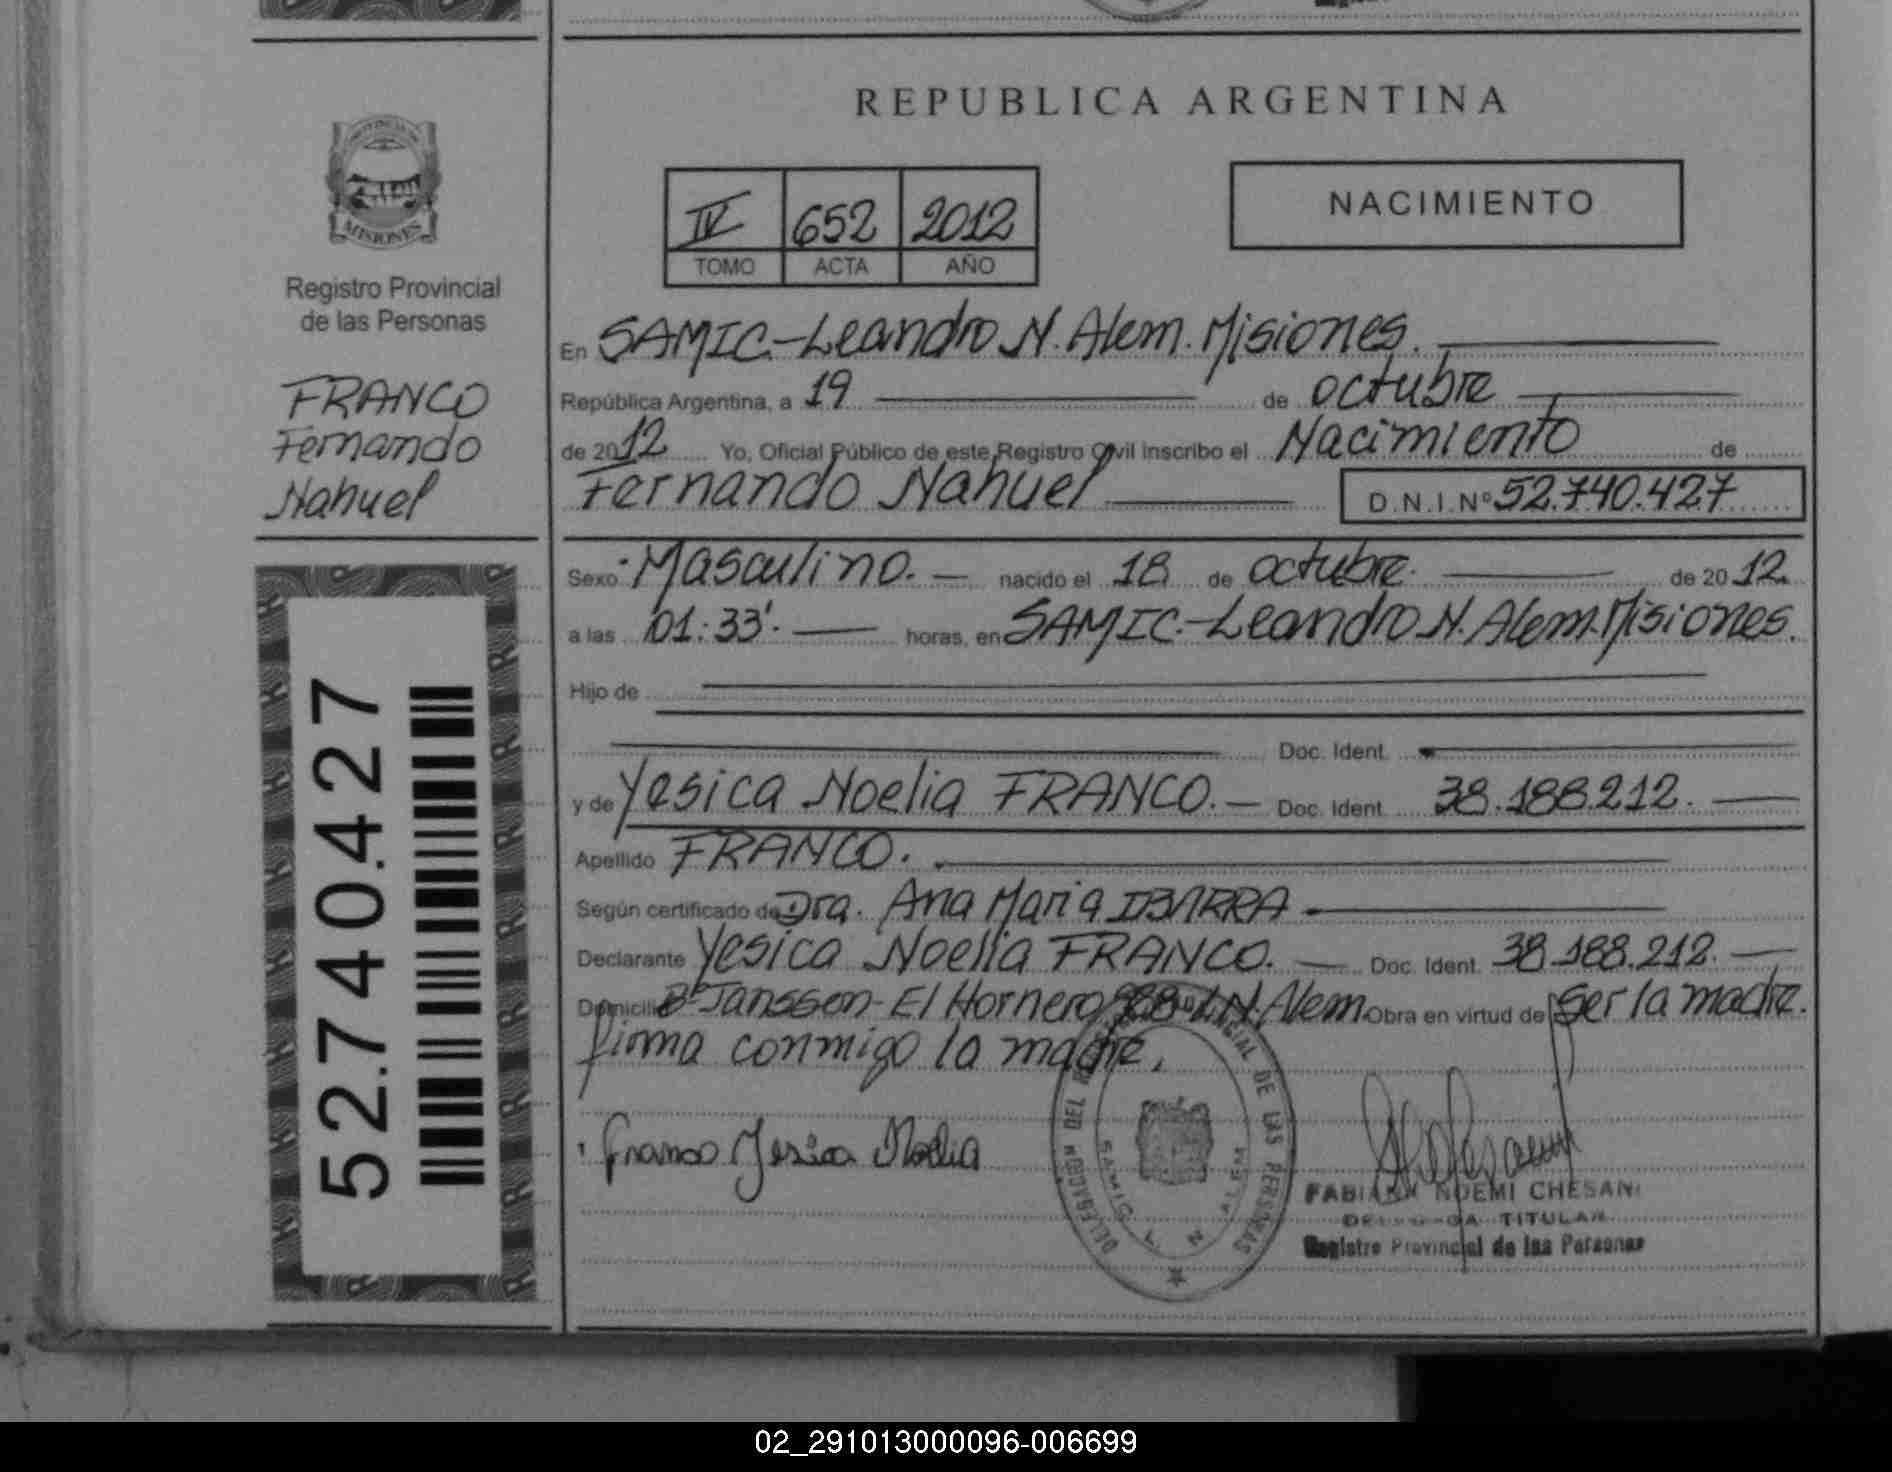 REPUBLICA ARGENTINA
PROVINCIA DE
MISIONES
Registro Provincial
de las Personas
FRANCO
Fernando
Nahuel
52.740.427
IV 652 2012
TOMO ACTA AÑO
NACIMIENTO
En SAMIC.-Leandro N. Alem. Misiones.
República Argentina, a 19 de octubre
de 2012 Yo, Oficial Público de este Registro Civil inscribo el Nacimiento de
Fernando Nahuel D.N.I.Nº 52.740.427
Sexo Masculino. nacido el 18 de octubre. de 2012.
a las 01:33'. horas, en SAMIC.-Leandro N. Alem. Misiones.
Hijo de
Doc. Ident.
y de Yesica Noelia FRANCO.- Doc. Ident. 38.188.212.
Apellido FRANCO.
Según certificado de Dra. Ana Maria IBARRA
Declarante Yesica Noelia FRANCO. Doc. Ident. 38.188.212.
Domicilio Bº Janssen- El Hornero L.N. Alem. Obra en virtud de Ser la madre.
firma conmigo la madre.
Franco Yesica Noelia
DELEGACION DEL REGISTRO PROVINCIAL DE LAS PERSONAS
SAMIC L N ALEM
FABIANA NOEMI CHESANI
DELEGADA TITULAR
Registro Provincial de las Personas
02_291013000096-006699